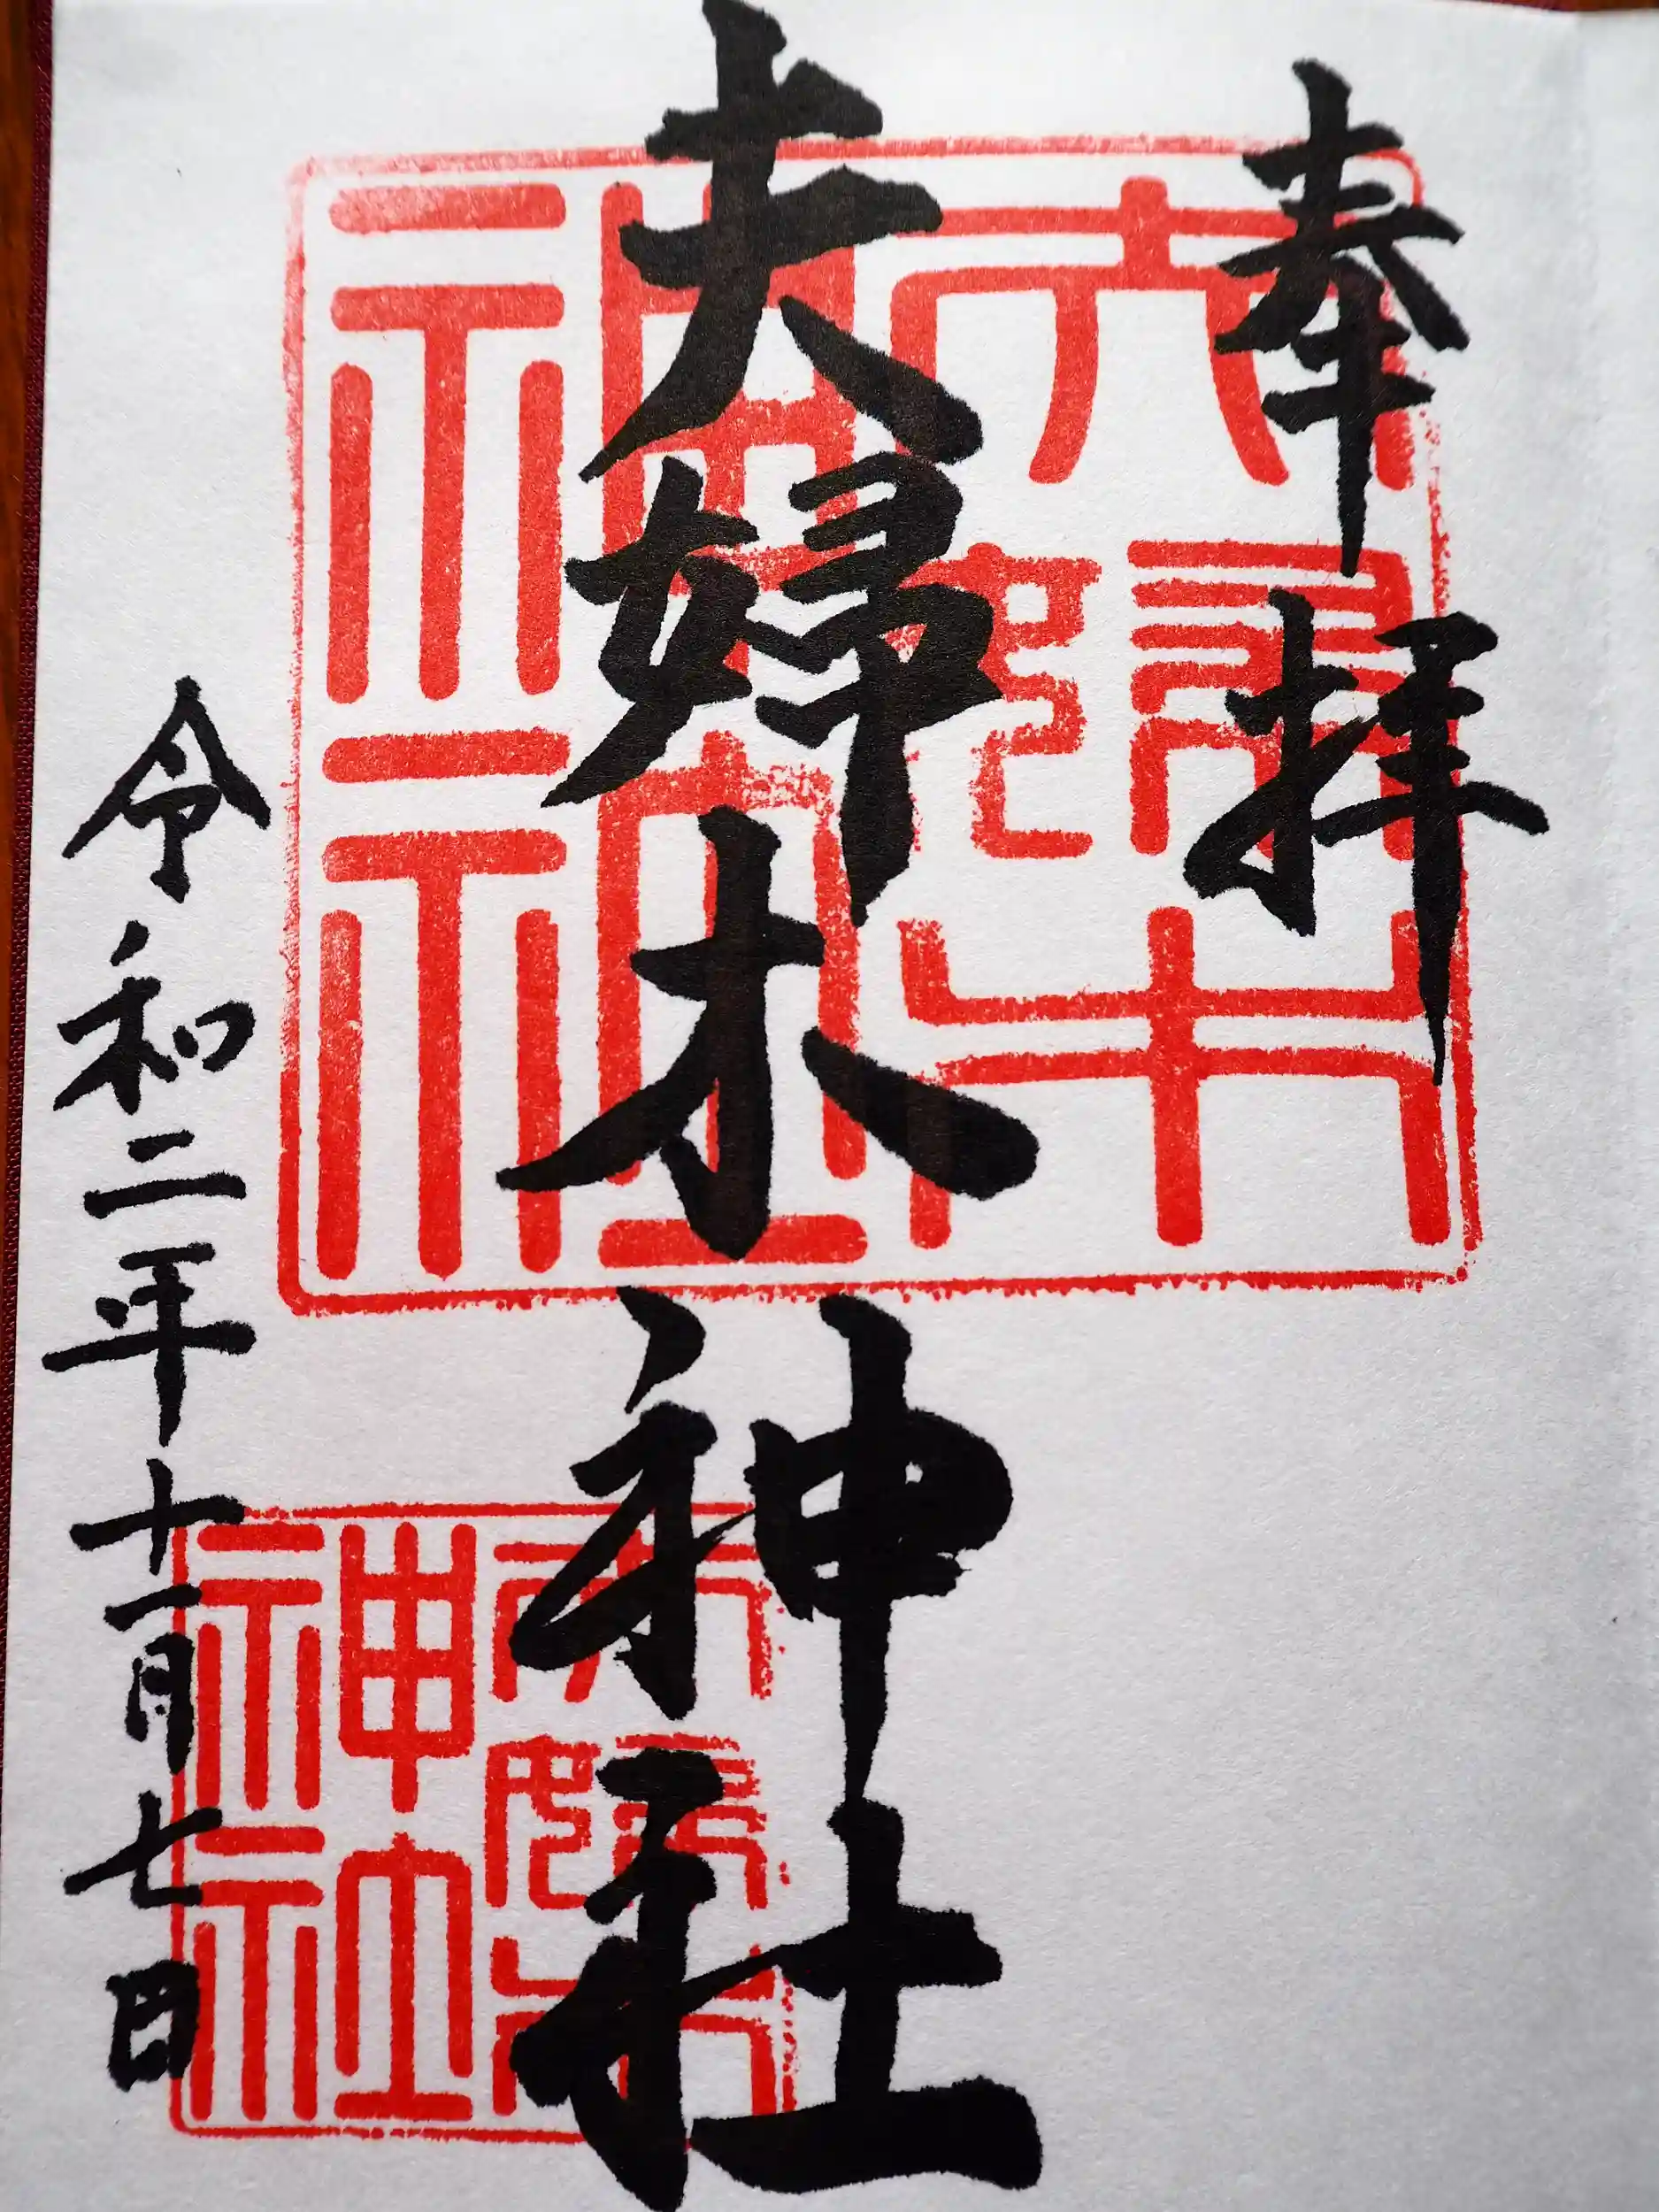 奉拝
夫婦木神社
令和二年十一月七日
夫婦木神社
夫婦木神社